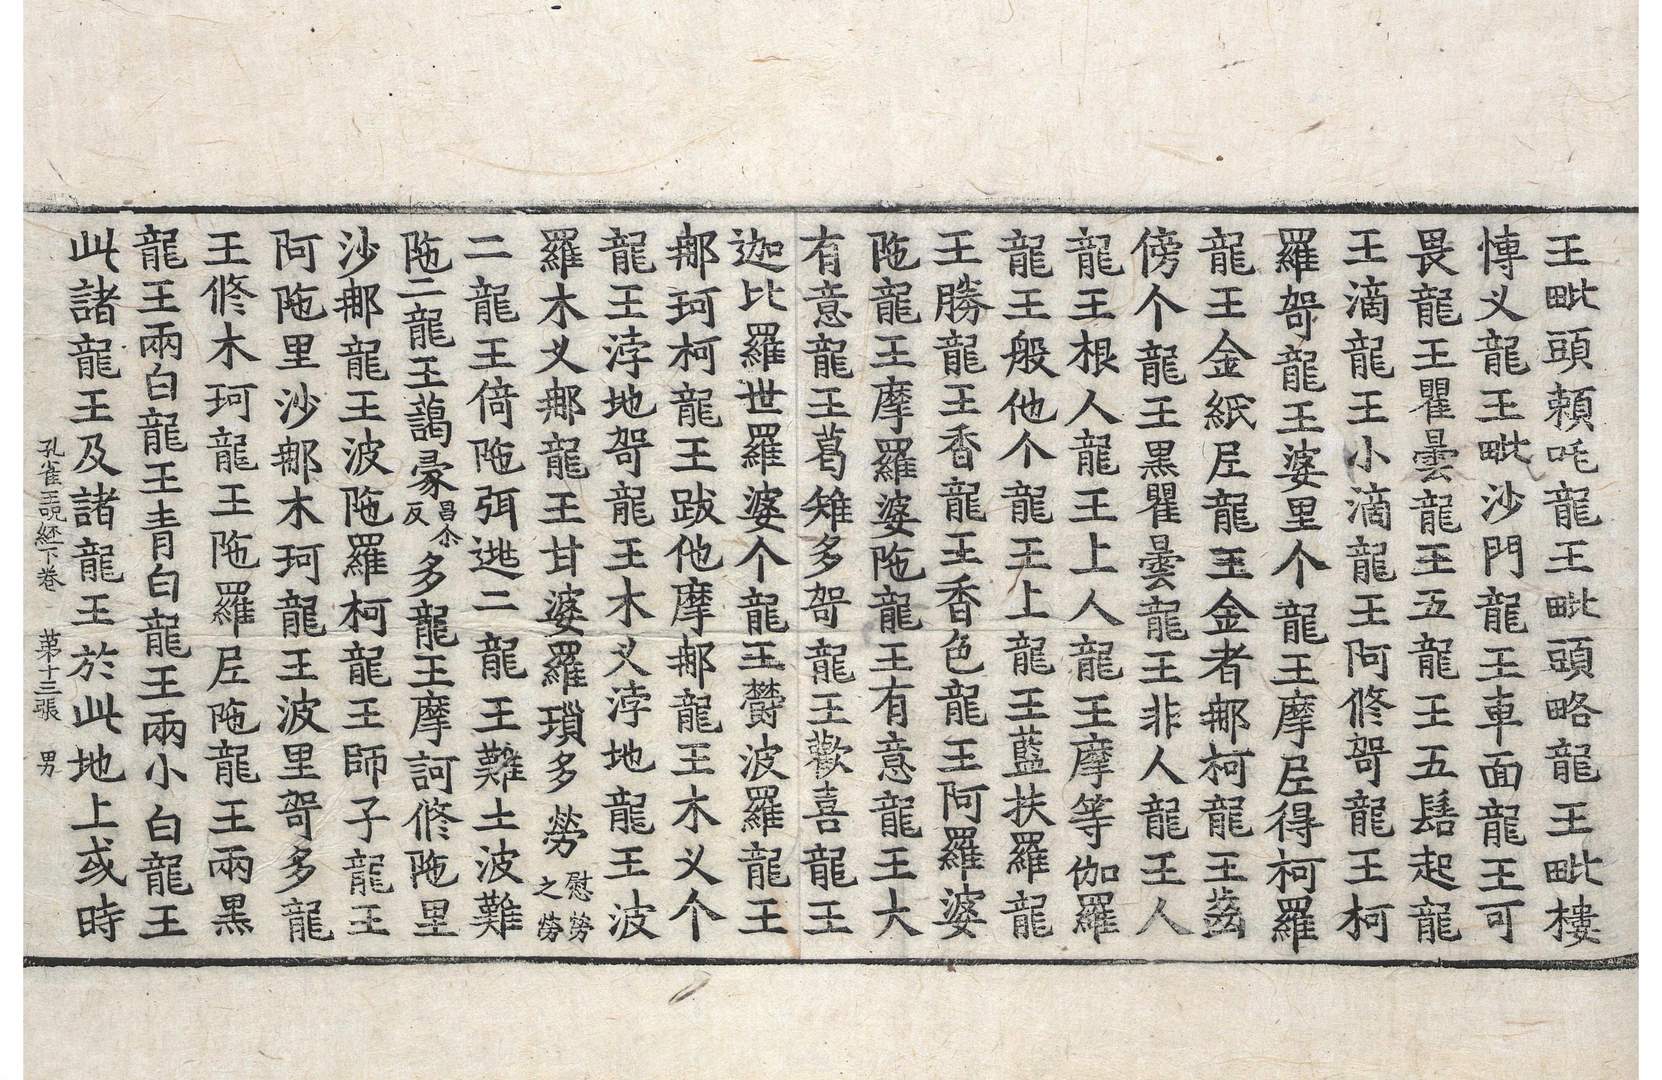 王毗頭賴吒龍王毗頭略龍王毗樓
慱义龍王毗沙門龍王車面龍王可
畏龍王瞿曇龍王五龍王五髻起龍
王滴龍王小滴龍王阿修哿龍王柯
羅哿龍王婆里个龍王摩𡰱得柯羅
龍王金紙𡰱龍王金者郍柯龍王齒
傍个龍王黒瞿曇龍王非人龍王人
龍王根人龍王上人龍王摩等伽羅
龍王般他个龍王上龍王藍扶羅龍
王勝龍王香龍王香色龍王阿羅婆
陁龍王摩羅婆陁龍王有意龍王大
有意龍王葛雉多哿龍王歡喜龍王
迦比羅世羅婆个龍王欝波羅龍王
郍珂柯龍王跋他摩郍龍王木义个
龍王浡地哿龍王木义浡地龍王波
羅木义郍龍王甘婆羅瑣多勞慰勞之勞
二龍王倚陁弭逃二龍王難土波難
陁二龍王藹㝹昌尒反多龍王摩訶修陁里
沙郍龍王波陁羅柯龍王師子龍王
阿陁里沙郍木珂龍王波里哿多龍
王修木珂龍王陁羅𡰱陁龍王兩黒
龍王兩白龍王青白龍王兩小白龍王
此諸龍王及諸龍王於此地上或時
孔雀王說經下卷 第十三張 男